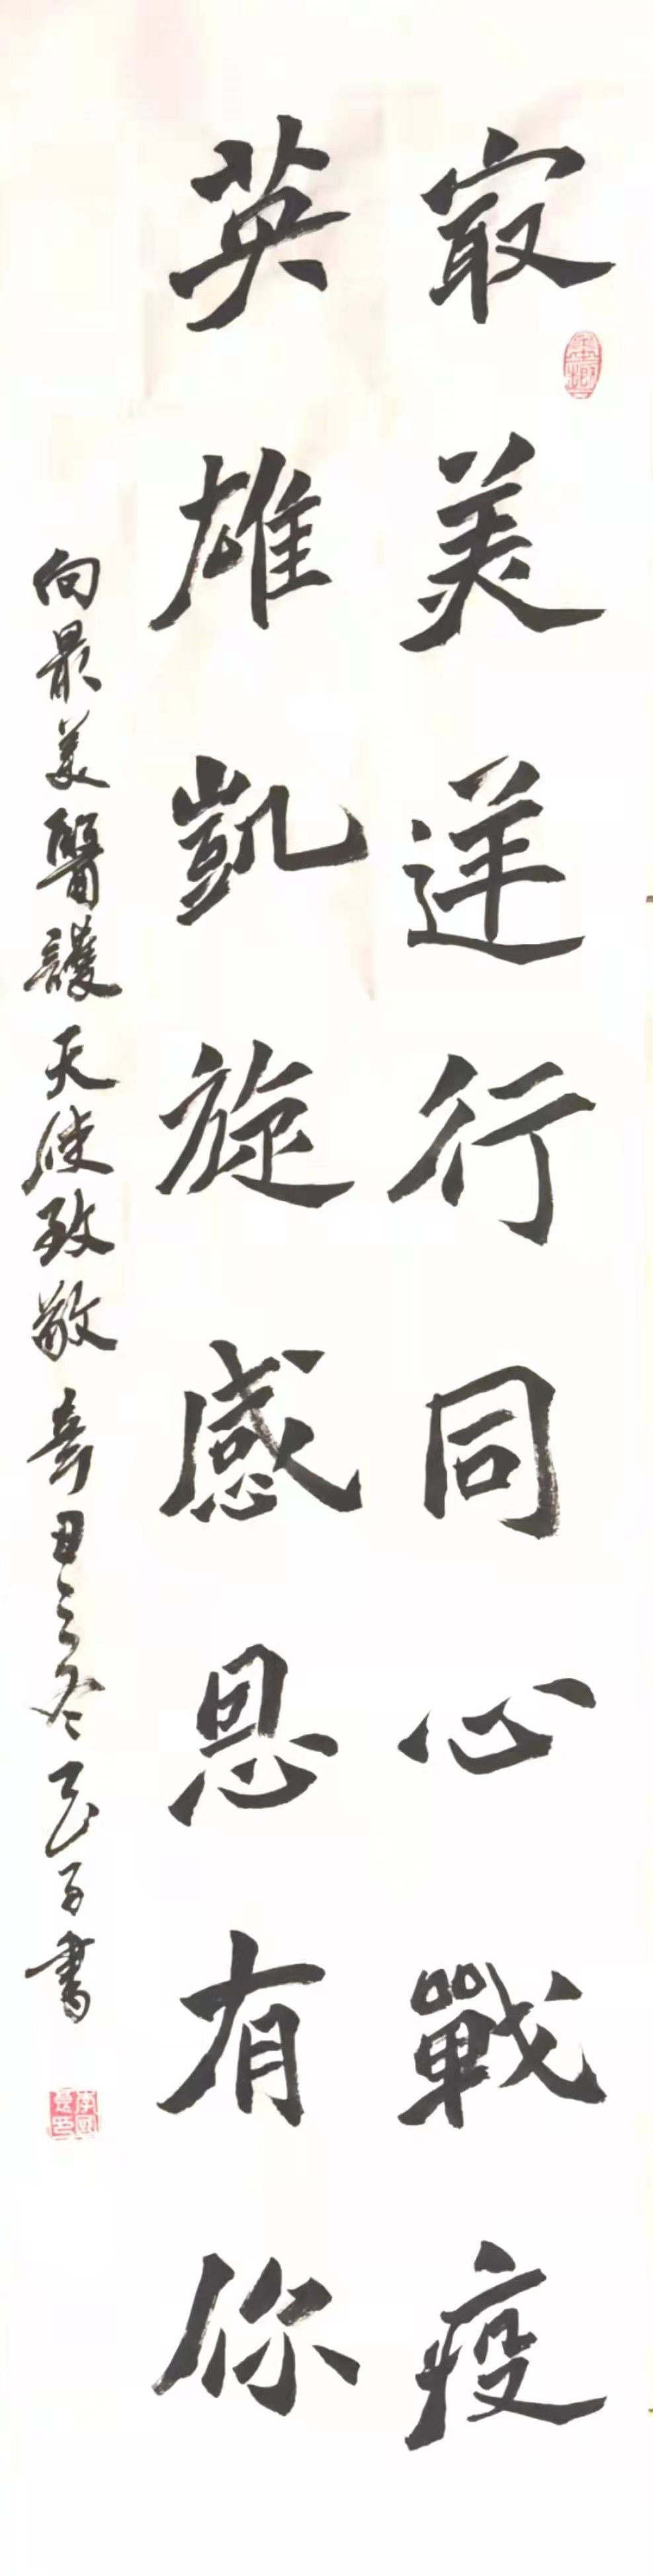 冣美逆行同心戰疫
英雄凱旋感恩有你
向最美醫護天使致敬 辛丑之冬 書